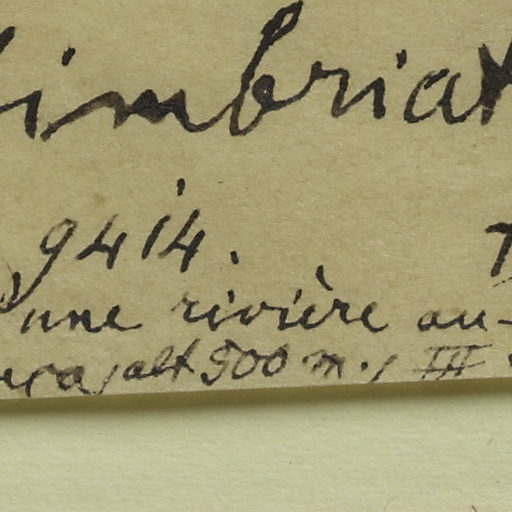 imbriat
9414.
une rivière au-
alt 500 m., III